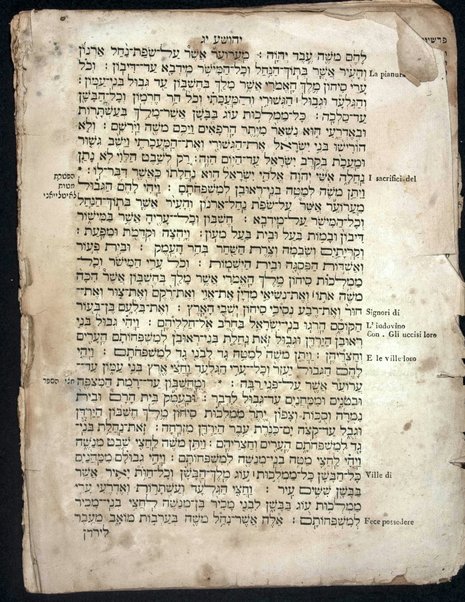 יהושע יג
להם משה עבד יהוה : מערוער אשר על שפת נחל ארנון
והעיר אשר בתוך הנחל וכל המישר מידבא עד דיבון : וכל
La pianura
ערי סיחון מלך האמרי אשר מלך בחשבון עד גבול בני עמון :
והגלעד וגבול הגשורי והמעכתי וכל הר חרמון וכל הבשן
עד סלכה : כל ממלכות עוג בבשן אשר מלך בעשתרות
ובאדרעי הוא נשאר מיתר הרפאים ויכם משה וירשם : ולא
הורישו בני ישראל את הגשורי ואת המעכתי וישב גשור
ומעכת בקרב ישראל עד היום הזה : רק לשבט הלוי לא נתן
נחלה אשי יהוה אלהי ישראל הוא נחלתו כאשר דבר לו :
I sacrifici del
הפטרת
ויתן משה למטה בני ראובן למשפחותם : ויהי להם הגבול
מטות
מערוער אשר על שפת נחל ארנון והעיר אשר בתוך הנחל
וכל המישר על מידבא : חשבון וכל עריה אשר במישור
דיבון ובמות בעל ובית בעל מעון : ויהצה וקדמת ומפעת :
וקריתים ושבמה וצרת השחר בהר העמק : ובית פעור
ואשדות הפסגה ובית הישמות : וכל ערי המישר וכל
ממלכות סיחון מלך האמרי אשר מלך בחשבון אשר הכה
משה אתו ואת נשיאי מדין את אוי ואת רקם ואת צור ואת
חור ואת רבע נסיכי סיחון ישבי הארץ : ואת בלעם בן בעור
Signori di
הקוסם הרגו בני ישראל בחרב אל חלליהם : ויהי גבול בני
L'indovino
Con . Gli uccisi loro
ראובן הירדן וגבול זאת נחלת בני ראובן למשפחותם הערים
וחצריהן : ויתן משה למטה גד לבני גד למשפחתם : ויהי
E le ville loro
להם הגבול יעזר וכל ערי הגלעד וחצי ארץ בני עמון עד
ערוער אשר על פני רבה : ומחשבון עד רמת המצפה
ובטנים וממחנים עד גבול לדבר : ובעמק בית הרם ובית
נמרה וסכות וצפון יתר ממלכות סיחון מלך חשבון הירדן
וגבל עד קצה ים כנרת עבר הירדן מזרחה : זאת נחלת בני
גד למשפחתם הערים וחצריהם : ויתן משה לחצי שבט מנשה
ויהי לחצי מטה בני מנשה למשפחותם : ויהי גבולם ממחנים
כל הבשן כל ממלכות עוג מלך הבשן וכל חות יאיר אשר
Ville di
בבשן ששים עיר : וחצי הגלעד ועשתרות ואדרעי ערי
ממלכות עוג בבשן לבני מכיר בן מנשה לחצי בני מכיר
למשפחותם : אלה אשר נחל משה בערבות מואב מעבר
Fece possedere
לירדן